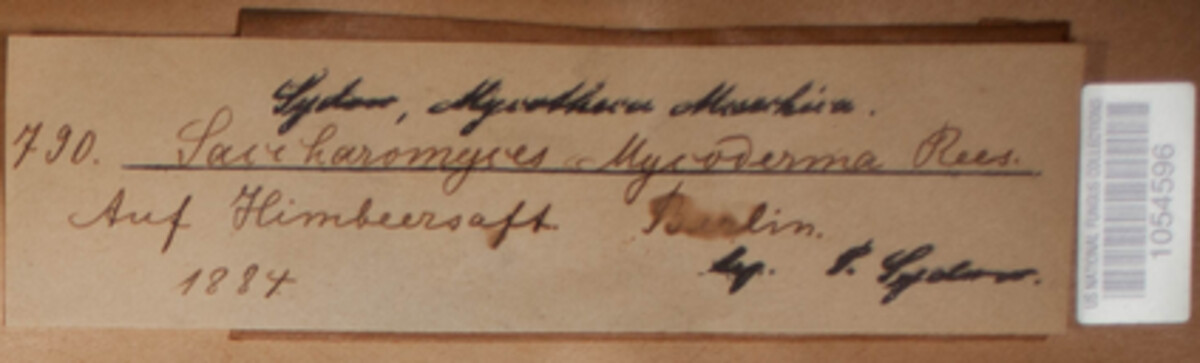 Sydow, Mycotheca Marchica.
790. Saccharomyces Mycoderma Rees.
Auf Himbeersaft. Berlin.
1884
leg. P. Sydow.
US NATIONAL FUNGUS COLLECTIONS
1054596